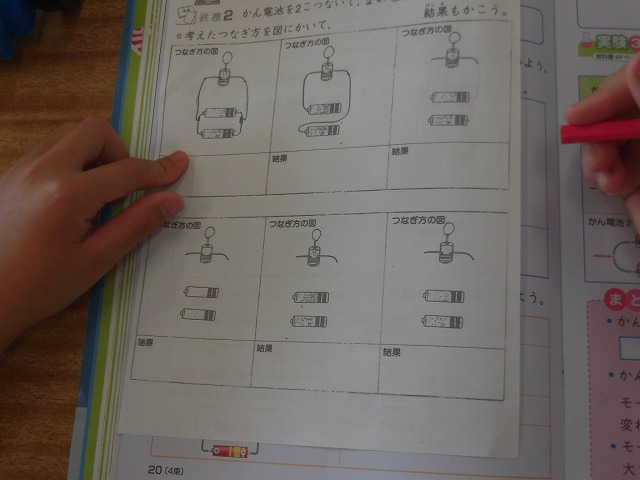 2 かん電池を2こつないで、
結果もかこう。
考えたつなぎ方を図にかいて、
つなぎ方の図
つなぎ方の図
つなぎ方の図
結果
結果
つなぎ方の図
つなぎ方の図
つなぎ方の図
結果
結果
結果
20 (4東)
実験 3
よう。
かん電池 2
よう。
まと
・かん
・かん
モー
変わ
・モー
大